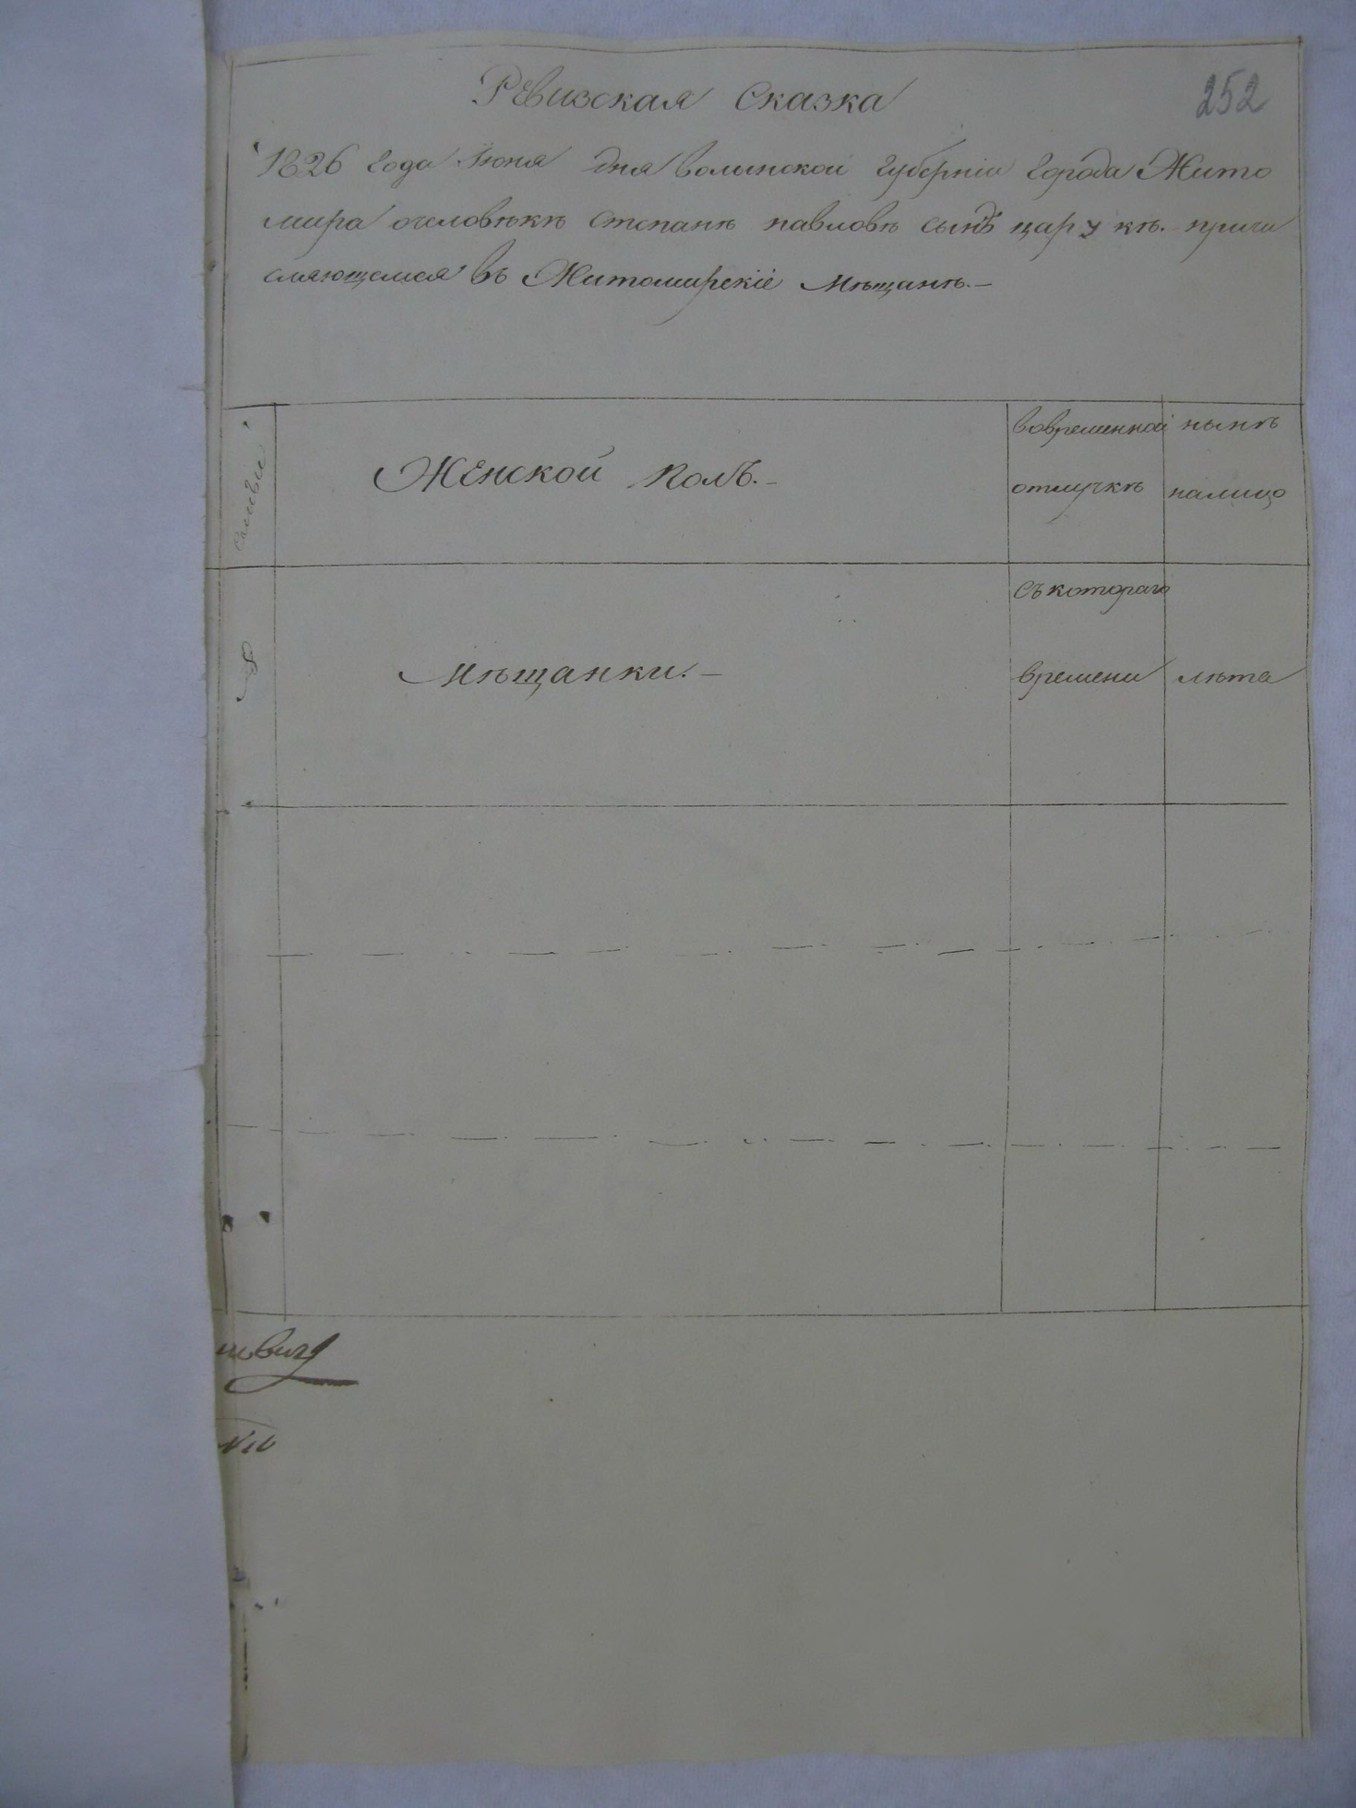 Ревизская Сказка
252
1826 года Июня дня волынской губерніи города Жито
мира очеловѣкѣ степанѣ павловѣ сынѣ царукѣ.- причи
сляющемся въ Житомирскіе Мѣщанѣ.-
Женской полъ.-
вовременной
отлучкѣ
нынѣ
налицо
Мѣщанки.-
съкотораго
времени
лѣта